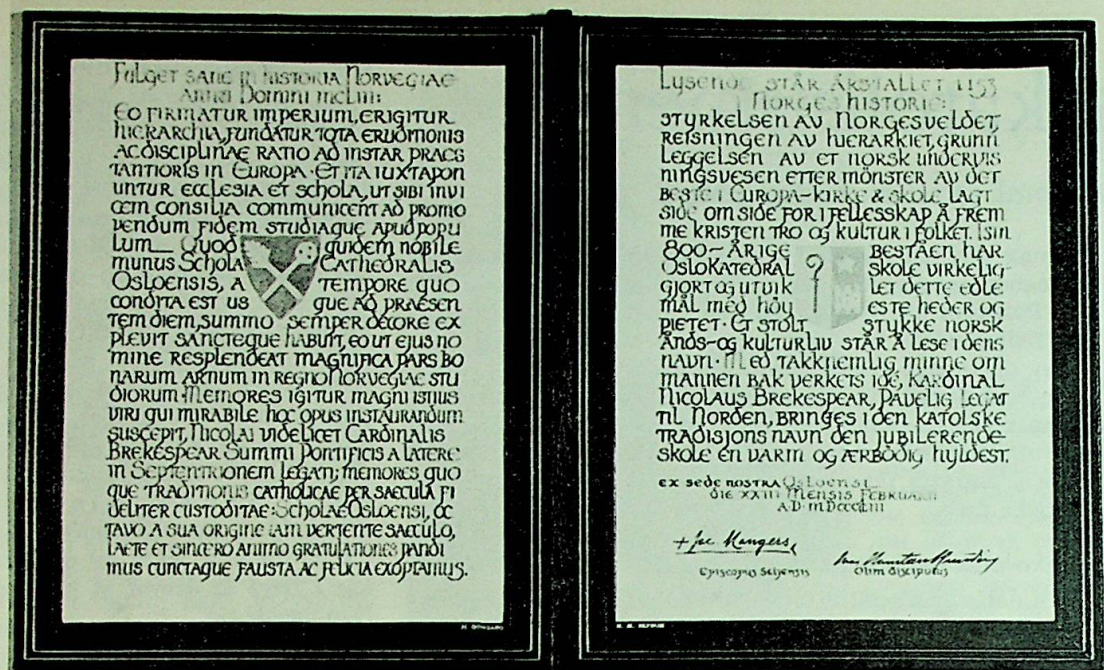 Fulget sane in historia Norvegiae
Anni Domini MCLIII:
Eo firmatur imperium, erigitur
hierarchia, fundatur tota eruditionis
ac disciplinae ratio ad instar praes
tantioris in Europa · Et ita iuxtapon
untur ecclesia et schola, ut sibi invi
cem consilia communicent ad promo
vendum fidem studiaque apud popu
lum__ Quod quidem nobile
munus Schola Cathedralis
Osloensis, a tempore quo
condita est us que ad praesen
tem diem, summo semper decore ex
plevit sancteque habuit, eo ut ejus no
mine resplendeat magnifica pars bo
narum artium in regno Norvegiae stu
diorum · Memores igitur magni istius
viri qui mirabile hoc opus instaurandum
suscepit, Nicolai videlicet Cardinalis
Brekespear Summi Pontificis a latere
in Septentrionem legati; memores quo
que traditionis catholicae per saecula fi
deliter custoditae: Scholae Osloensi, oc
tavo a sua origine iam vertente saeculo,
laete et sincero animo gratulationes pandi
mus cunctaque fausta ac felicia exoptamus.
Lysende står årstallet 1153
i Norges historie:
styrkelsen av Norgesveldet,
reisningen av hierarkiet, grunn
leggelsen av et norsk undervis
ningsvesen etter mönster av det
beste i Europa – kirke & skole lagt
side om side for i fellesskap å frem
me kristen tro og kultur i folket. I sin
800-årige beståen har
Oslo Katedral skole virkelig-
gjort og utvik let dette edle
mål med höy este heder og
pietet · Et stolt stykke norsk
ånds-og kulturliv står å lese i dens
navn · Med takknemlig minne om
mannen bak verkets idé, Kardinal
Nicolaus Brekespear, Pavelig Legat
til Norden, bringes i den katolske
tradisjons navn den jubilerende-
skole en varm og ærbödig hyldest.
ex sede nostra Osloensi
die XXIII mensis Februarii
A·D·MDCCCLIII
+ Jac Mangers,
Episcopus Seljensis
Olim discipulus